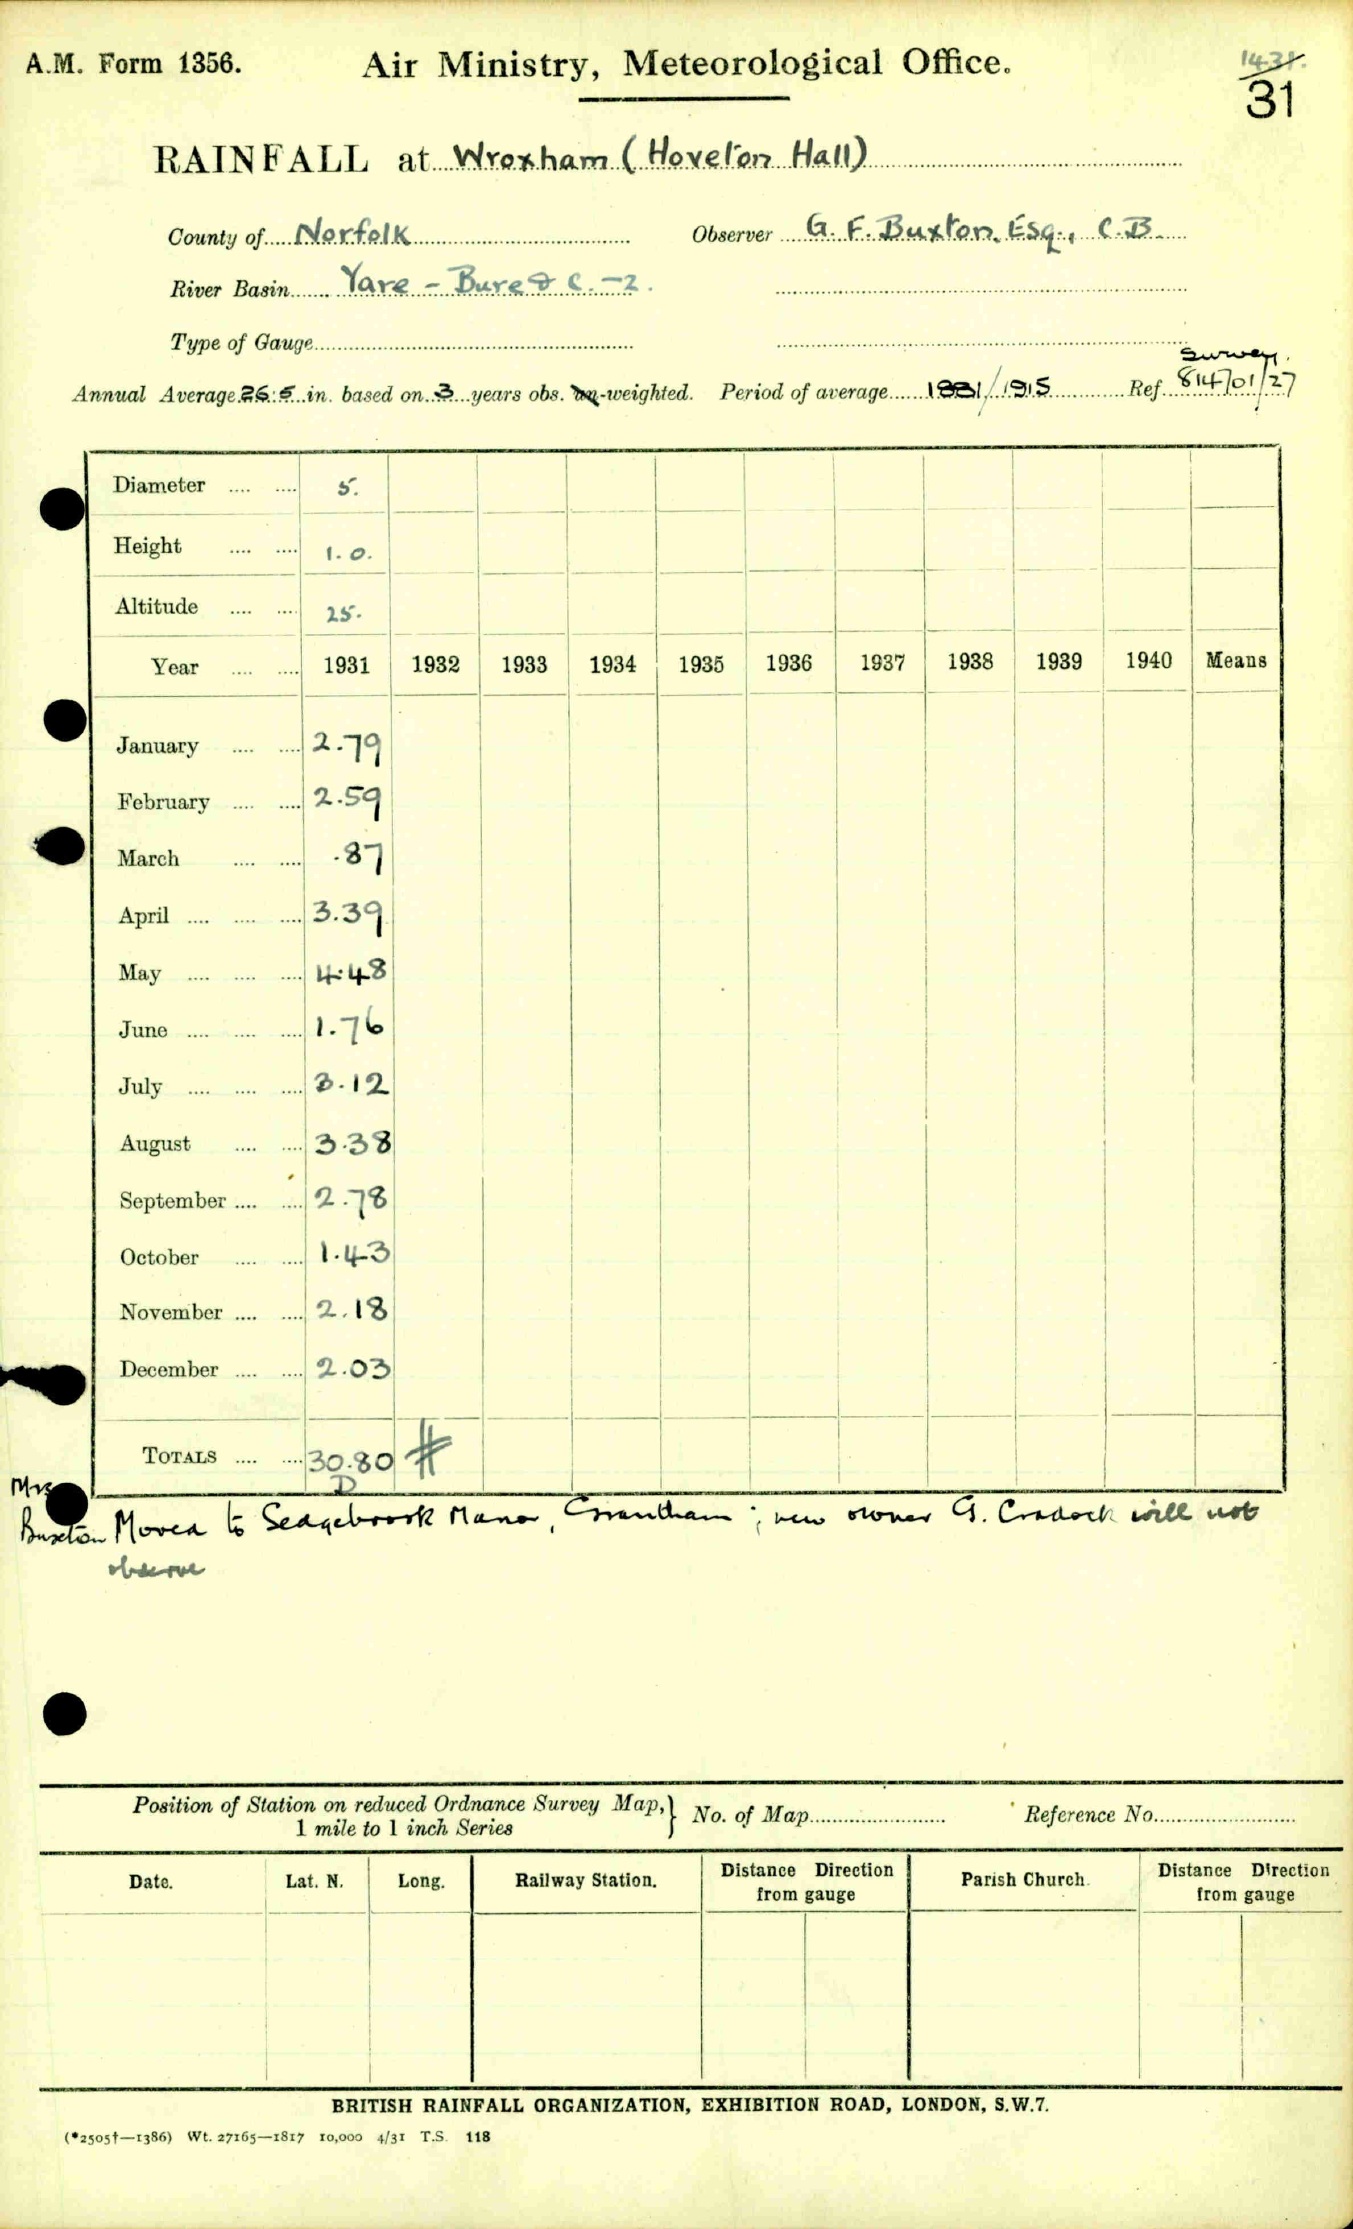 A.M. Form 1356.
Air Ministry, Meteorological Office.
1431.
31
RAINFALL at Wroxham (Hoveton Hall)
County of Norfolk Observer G. F. Buxton, Esq., C.B.
River Basin Yare - Bure & C. - 2.
Type of Gauge
Survey.
Annual Average 26.5 in. based on 3 years obs. un-weighted. Period of average 1881/1915 Ref. 814701/27
Diameter .... .... 5.
Height .... .... 1. 0.
Altitude .... .... 25.
Year .... .... 1931 1932 1933 1934 1935 1936 1937 1938 1939 1940 Means
January .... .... 2.79
February .... .... 2.59
March .... .... .87
April .... .... .... 3.39
May .... .... .... 4.48
June .... .... .... 1.76
July .... .... .... 3.12
August .... .... 3.38
September .... .... 2.78
October .... .... 1.43
November .... .... 2.18
December .... .... 2.03
TOTALS .... .... 30.80 #
D
Mrs
Buxton Moved to Sedgebrook Manor, Grantham ; new owner G. Cradock will not
observe
Position of Station on reduced Ordnance Survey Map, } No. of Map Reference No.
1 mile to 1 inch Series
Date. Lat. N. Long. Railway Station. Distance Direction from gauge Parish Church. Distance Direction from gauge
BRITISH RAINFALL ORGANIZATION, EXHIBITION ROAD, LONDON, S.W.7.
(*2505†—1386) Wt. 27165—1817 10,000 4/31 T.S. 118